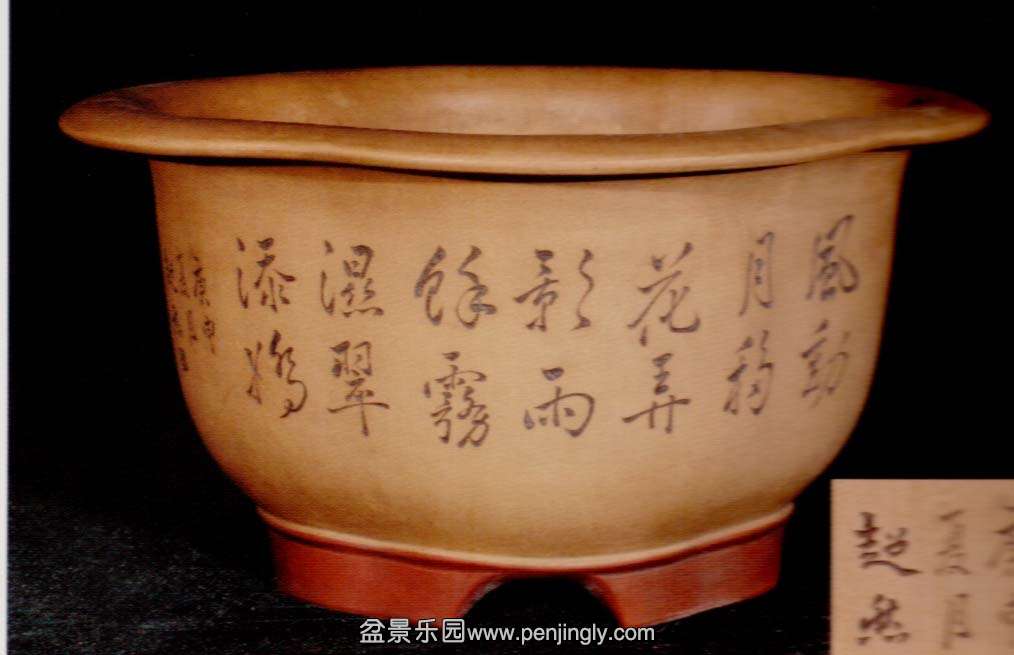 風動
月移
花弄
影雨
餘霧
濕翠
添嬌
庚申
夏月
超然
盆景乐园www.penjingly.com